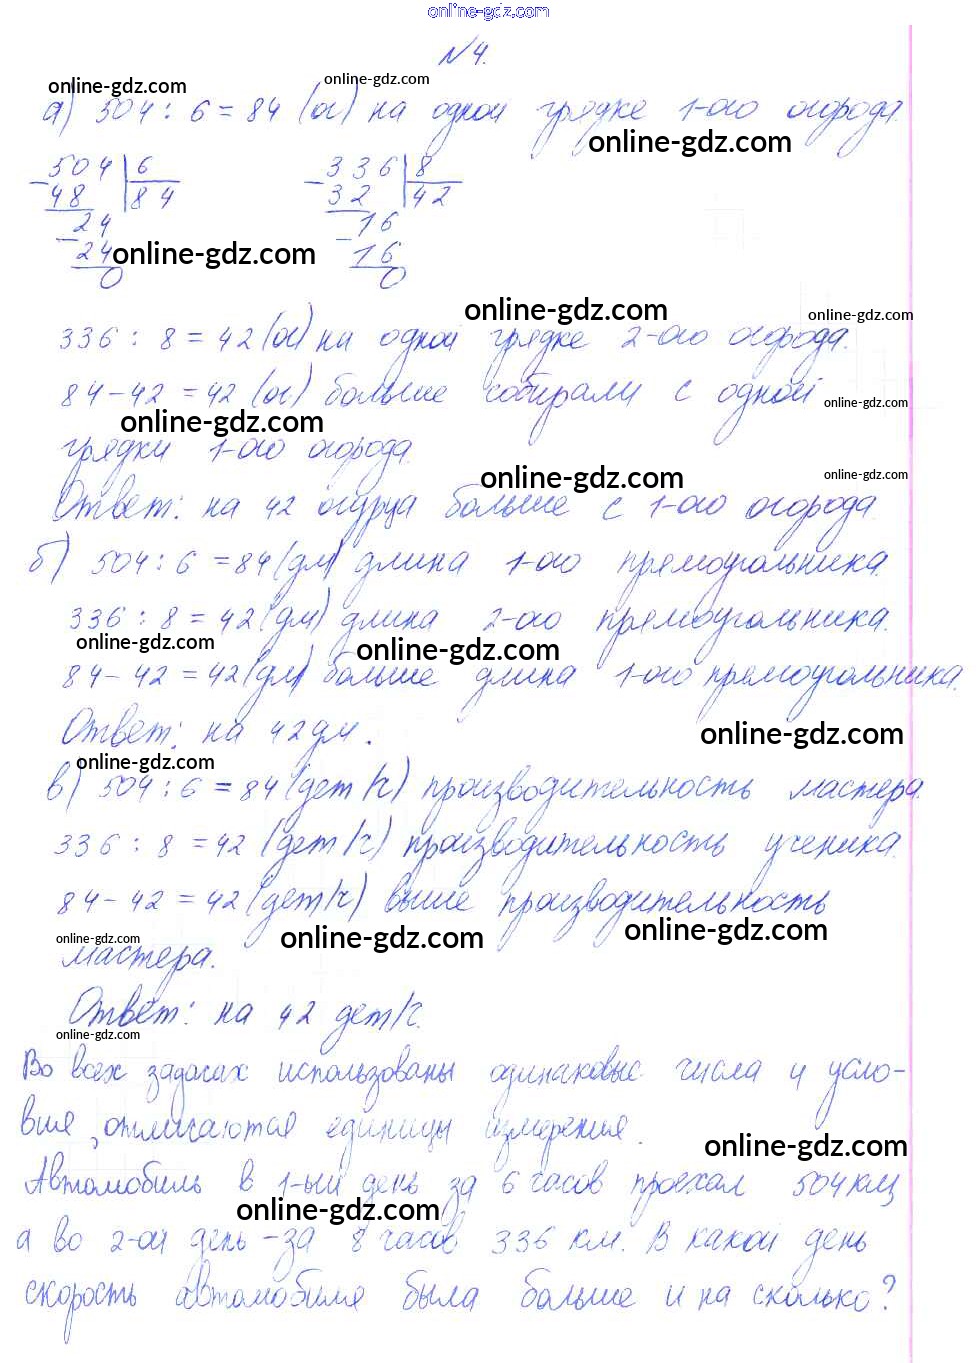 online-gdz.com
№4.
online-gdz.com online-gdz.com
а) 504 : 6 = 84 (ог) на одной грядке 1-ого огорода.
online-gdz.com
504 6 336 8
48 84 32 42
24 16
24 16
online-gdz.com
0 0
online-gdz.com online-gdz.com
336 : 8 = 42 (ог) на одной грядке 2-ого огорода.
84 - 42 = 42 (ог) больше собирали с одной
online-gdz.com online-gdz.com
грядки 1-ого огорода.
online-gdz.com online-gdz.com
Ответ: на 42 огурца больше с 1-ого огорода.
б) 504 : 6 = 84 (дм) длина 1-ого прямоугольника.
336 : 8 = 42 (дм) длина 2-ого прямоугольника.
online-gdz.com online-gdz.com
84 - 42 = 42 (дм) больше длина 1-ого прямоугольника.
Ответ: на 42 дм.
online-gdz.com
online-gdz.com
в) 504 : 6 = 84 (дет/ч) производительность мастера.
336 : 8 = 42 (дет/ч) производительность ученика.
84 - 42 = 42 (дет/ч) выше производительность
online-gdz.com online-gdz.com online-gdz.com
мастера.
Ответ: на 42 дет/ч.
online-gdz.com
Во всех задачах использованы одинаковые числа и усло-
вия, отличаются единицы измерения.
online-gdz.com
Автомобиль в 1-ый день за 6 часов проехал 504 км,
online-gdz.com
а во 2-ой день - за 8 часов 336 км. В какой день
скорость автомобиля была больше и на сколько?